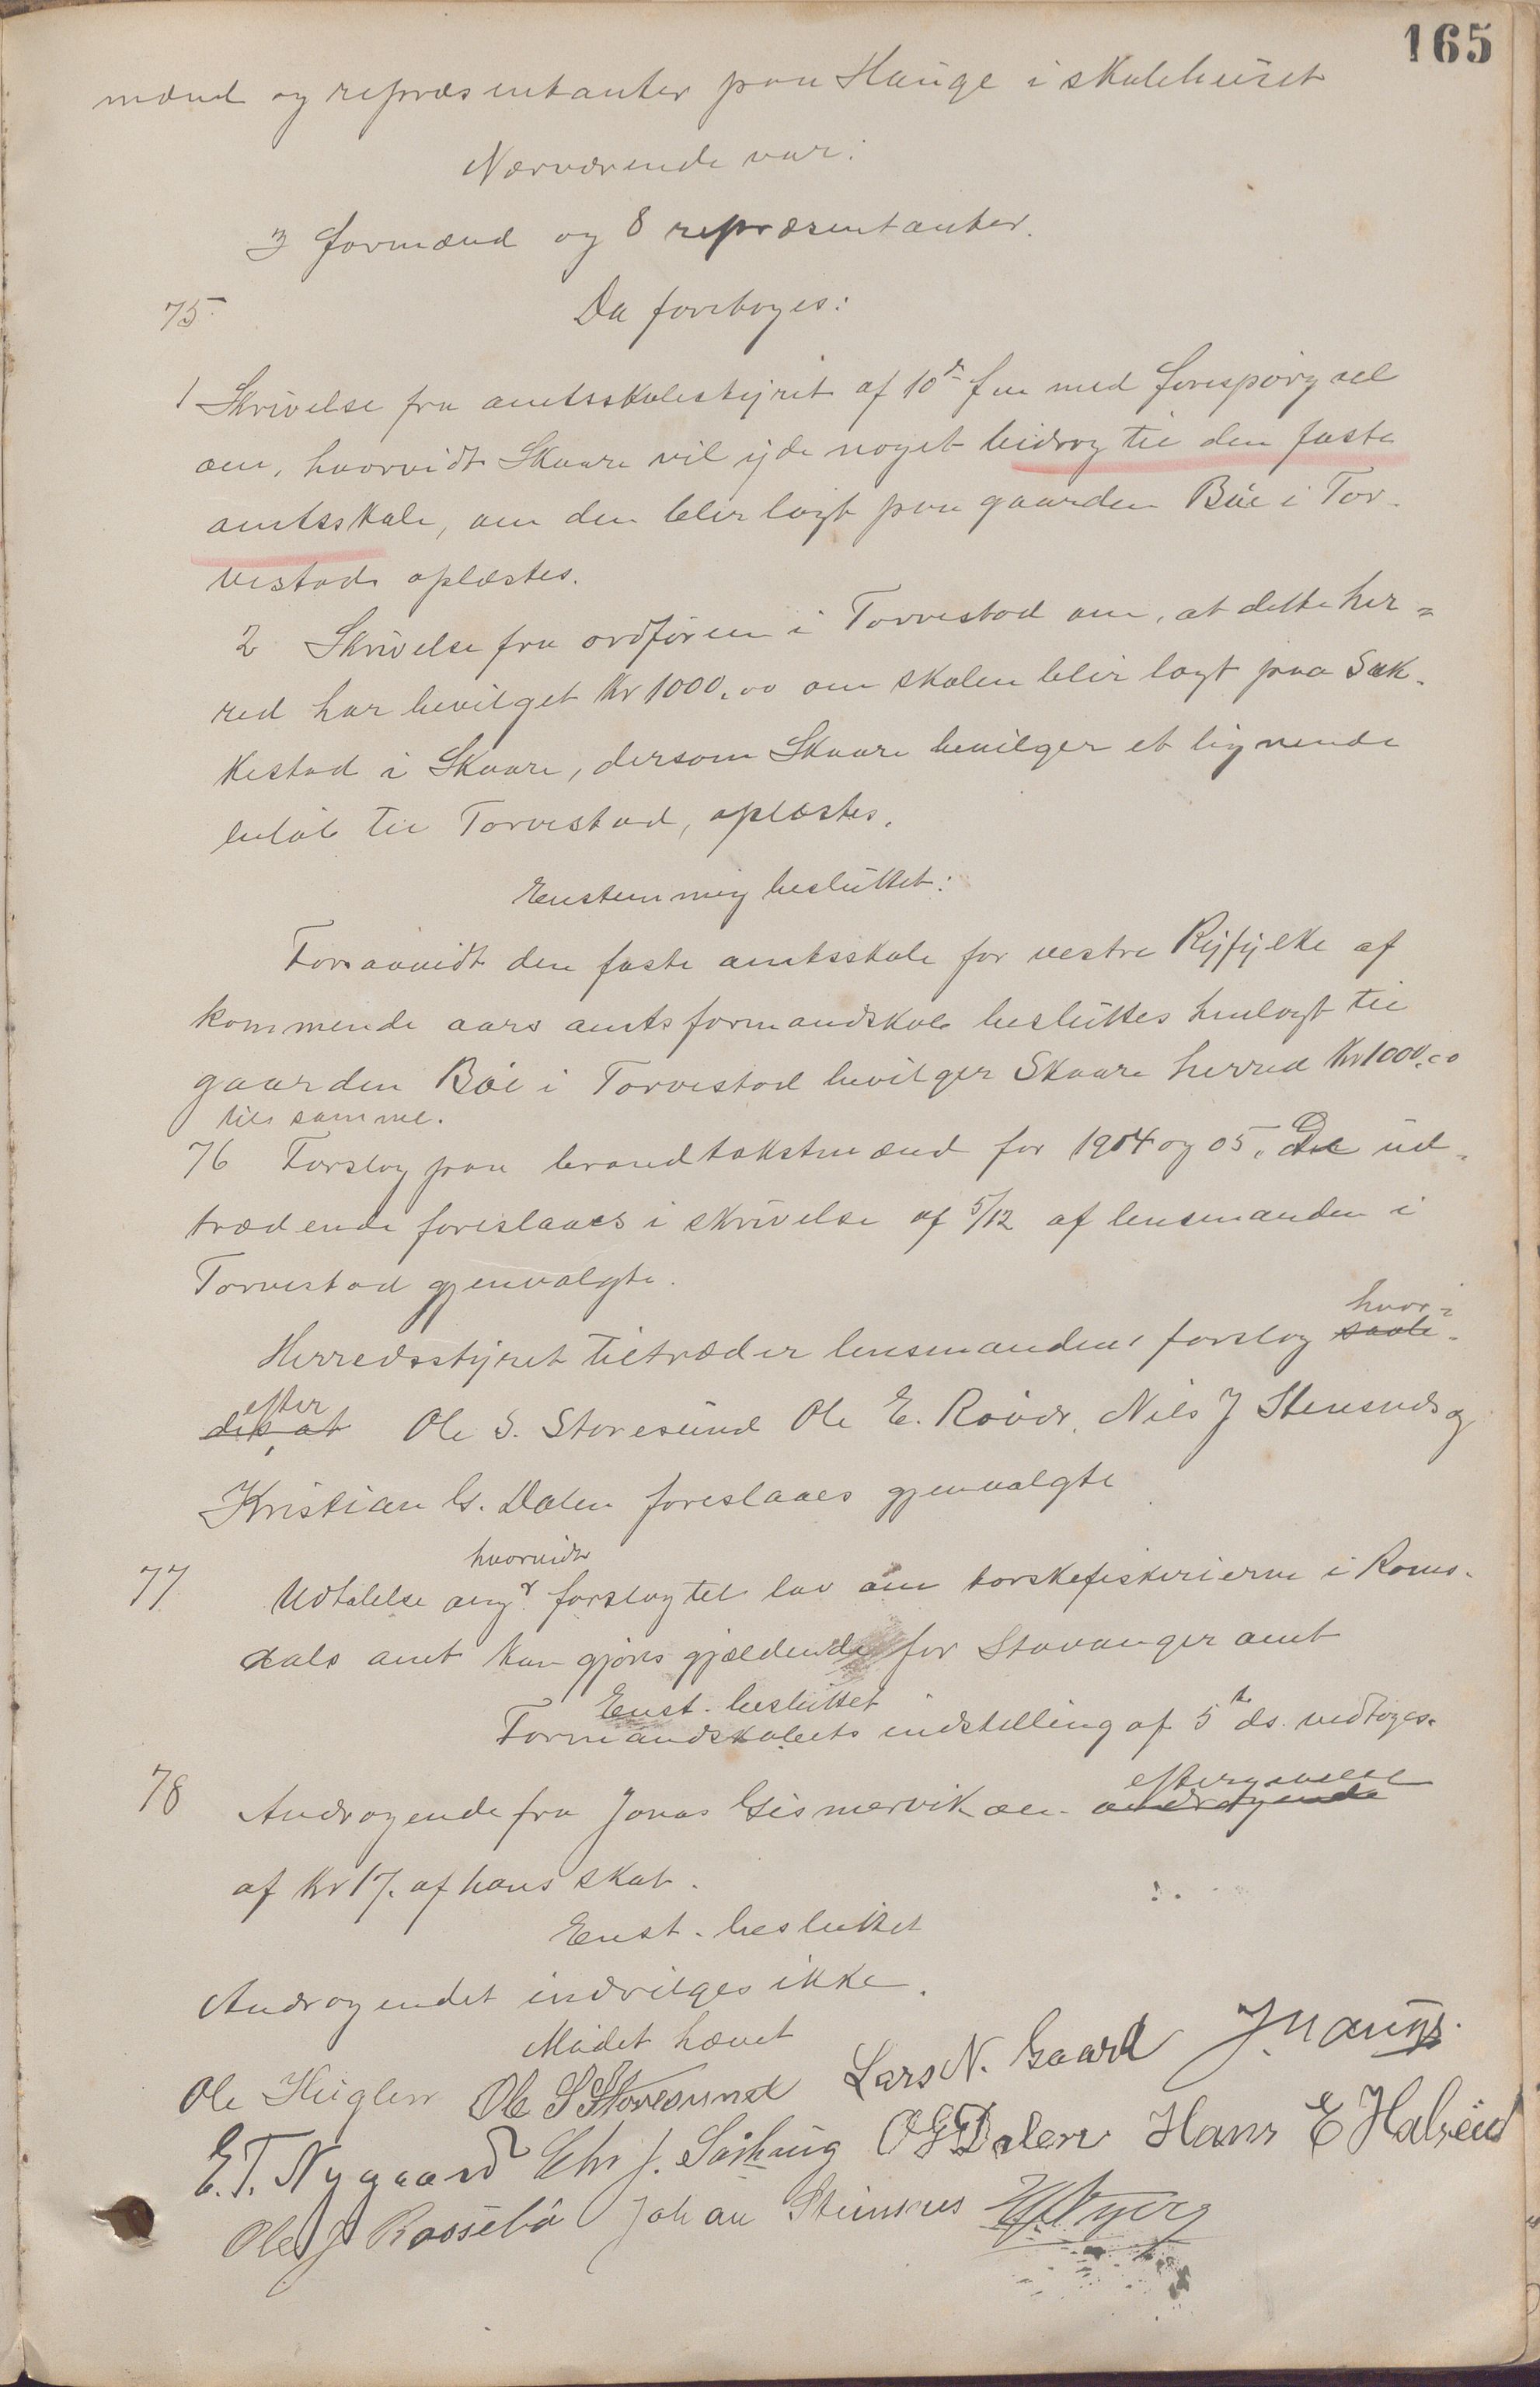 165
mænd og repræsentanter paa Hauge i skolehuset
Nærværende var:
3 formænd og 8 repræsentanter.
75 Da foretoges:
1 Skrivelse fra amtsskolestyret af 10de f m med forespørgsel
om, hvorvidt Skaare vil yde noget bidrag til den faste
amtsskole, om den blir lagt paa gaarden Bøe i Tor-
vestad oplæstes.
2 Skrivelse fra ordføreren i Torvestad om, at dette her=
red har bevilget Kr 1000.00 om skolen blir lagt paa Sak-
kestad i Skaare, dersom Skaare bevilger et lignende
beløb til Torvestad, oplæstes.
Enstemmig besluttet:
Forsaavidt den faste amtsskole for vestre Ryfylke af
kommende aars amtsformandskab besluttes henlagt til
gaarden Bøe i Torvestad bevilger Skaare herred Kr 1000.00
til samme.
76 Forslag paa brandtakstmænd for 1904 og 05. De ud-
trædende foreslaaes i skrivelse af 5/12 af lensmanden i
Torvestad gjenvalgte.
hvor-
Herredsstyret tiltræder lensmandens forslag saale-
efter
des at Ole S. Storesund Ole E. Røvær, Nils J Stensnds og
Kristian G. Dalen foreslaaes gjenvalgte
hvorvidt
77 Udtalelse angr forslag til lov om torskefiskerierne i Roms-
dals amt kan gjøres gjældende for Stavanger amt
Enst. besluttet
Formandskabets indstilling af 5te ds. vedtoges.
eftergivelse
78 Andragende fra Jonas Gismervik om andragende
af Kr 17. af hans skat.
Enst. besluttet
Andragendet indvilges ikke.
Mødet hævet
Ole Huglen Ole S Storesund Lars N. Gaard J. Hauge.
E. T. Nygaard Chr J. Sørhaug O G Dalen Hans E Halseid
Ole J Rossebø Johan Steinsnes